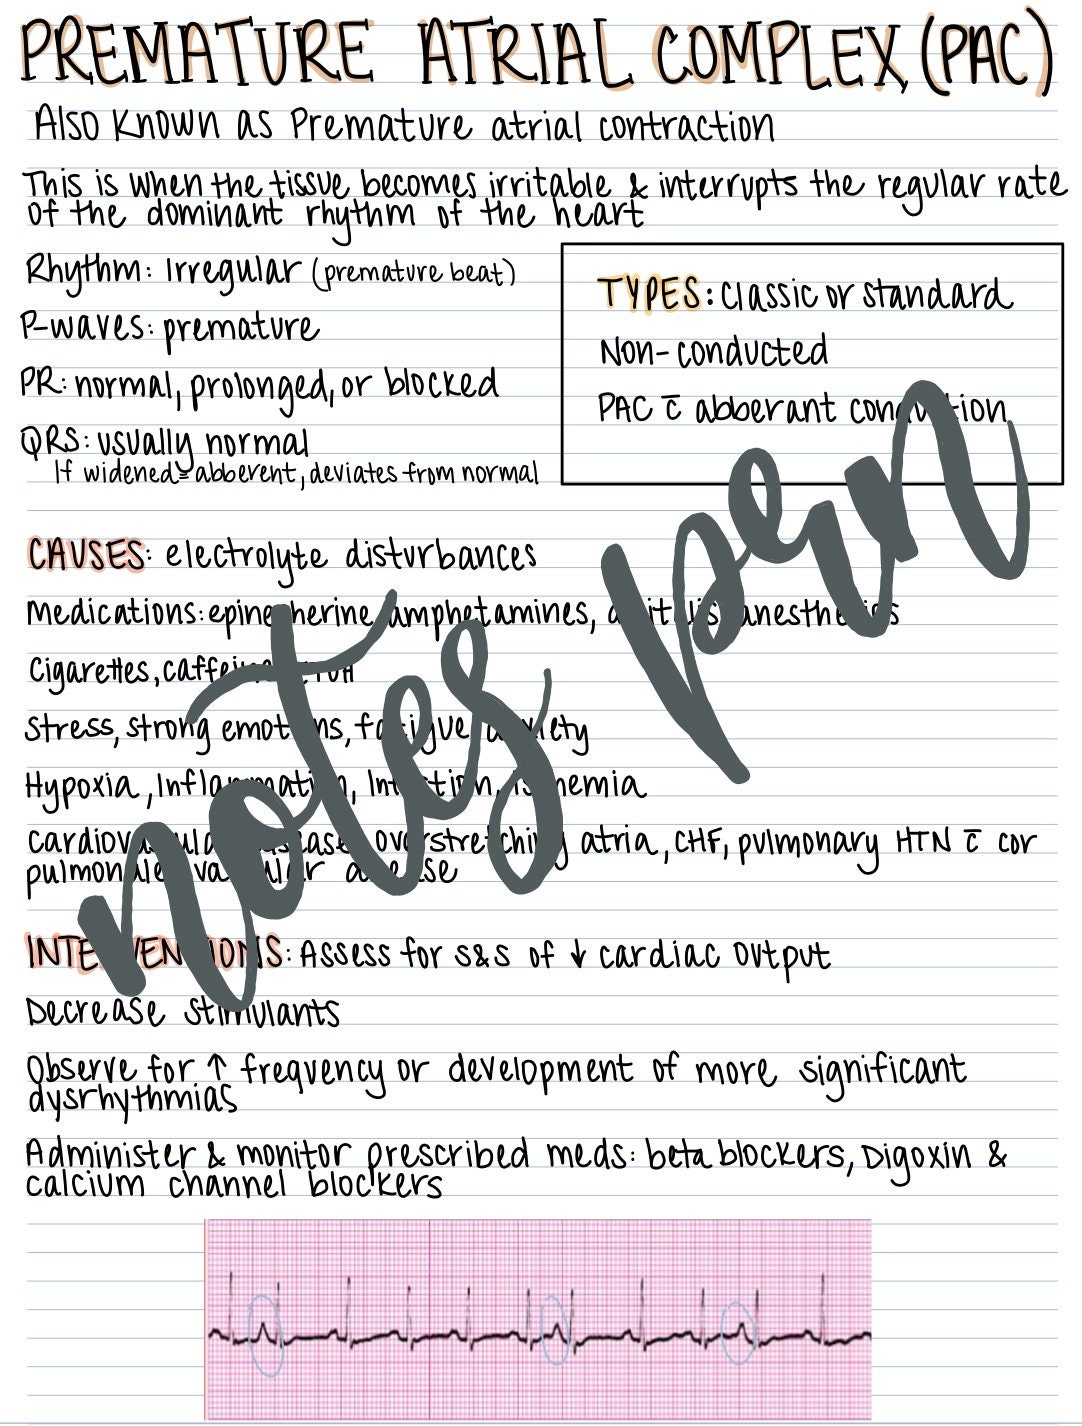 PREMATURE ATRIAL COMPLEX, (PAC)
Also known as Premature atrial contraction
This is when the tissue becomes irritable & interrupts the regular rate
of the dominant rhythm of the heart
Rhythm: Irregular (premature beat)
P-waves: premature
PR: normal, prolonged, or blocked
QRS: usually normal
If widened = abberent, deviates from normal
TYPES: Classic or standard
Non-conducted
PAC c̄ abberant conduction
CAUSES: electrolyte disturbances
Medications: epinepherine, amphetamines, digitalis, anesthetics
Cigarettes, caffeine, ETOH
Stress, strong emotions, fatigue, anxiety
Hypoxia, Inflammation, Infection, ischemia
Cardiovascular disease, overstretching atria, CHF, pulmonary HTN c̄ cor
pulmonale, disease
INTERVENTIONS: Assess for S&S of ↓ cardiac output
Decrease stimulants
Observe for ↑ frequency or development of more significant
dysrhythmias
Administer & monitor prescribed meds: beta blockers, Digoxin &
calcium channel blockers
notes prn